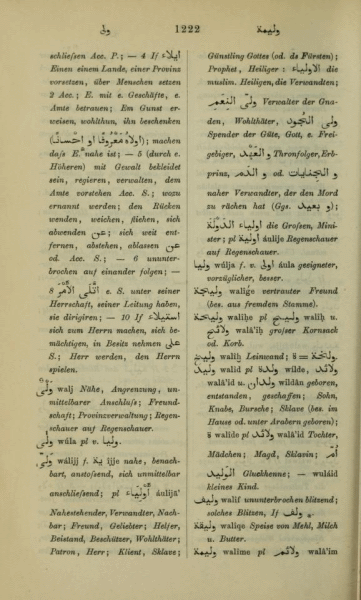 ولى
1222
وليمة
schliefsen Acc. P.; — 4 If ايلاء
Einen einem Lande, einer Provinz
vorsetzen, über Menschen setzen
2 Acc.; E. mit e. Geschäfte, e.
Amte betrauen; Em Gunst er-
weisen, wohlthun, ihn beschenken
(اولاه معروفا او احسانا); machen
dafs E. nahe ist; — 5 (durch e.
Höheren) mit Gewalt bekleidet
sein, regieren, verwalten, dem
Amte vorstehen Acc. S.; wozu
ernannt werden; den Rücken
wenden, weichen, fliehen, sich
abwenden عن; sich weit ent-
fernen, abstehen, ablassen عن
od. Acc. S.; — 6 ununter-
brochen auf einander folgen; —
8 اتلى الامر e. S. unter seiner
Herrschaft, seiner Leitung haben,
sie dirigiren; — 10 If استيلاء
sich zum Herrn machen, sich be-
mächtigen, in Besitz nehmen على
S.; Herr werden, den Herrn
spielen.
ولى walj Nähe, Angrenzung, un-
mittelbarer Anschlufs; Freund-
schaft; Provinzverwaltung; Regen-
schauer auf Regenschauer.
ولى wúla pl v. وليا.
ولى wálijj f. ية ijje nahe, benach-
bart, anstofsend, sich unmittelbar
anschliefsend; pl اولياء áulijâ'
Nahestehender, Verwandter, Nach-
bar; Freund, Geliebter; Helfer,
Beistand, Beschützer, Wohlthäter;
Patron, Herr; Klient, Sklave;
Günstling Gottes (od. ds Fürsten);
Prophet, Heiliger: الاولياء die
muslim. Heiligen, die Verwandten;
ولى النعم Verwalter der Gna-
den, Wohlthäter, ولى الجود
Spender der Güte, Gott, e. Frei-
gebiger, العهد و Thronfolger, Erb-
prinz, الجنايات و od. الدم و
naher Verwandter, der den Mord
zu rächen hat (Ggs. بعيد و);
اولياء الدولة die Grofsen, Mini-
ster; pl اولية áulije Regenschauer
auf Regenschauer.
وليا wúlja f. v. اولى áula geeigneter,
vorzüglicher, besser.
وليجة walîge vertrauter Freund
(bes. aus fremdem Stamme).
وليحة walîhe pl وليح walîh u.
ولائح walâ'ih grofser Kornsack
od. Korb.
وليخ walîh Leinwand; ة = ولخة.
وليد walîd pl ولدة wilde, ولائد
walâ'id u. ولدان wildân geboren,
entstanden, geschaffen; Sohn,
Knabe, Bursche; Sklave (bes. im
Hause od. unter Arabern geboren);
ة walîde pl ولائد walâ'id Tochter,
Mädchen; Magd, Sklavin; ام
الوليد Gluckhenne; — wuláid
kleines Kind.
وليف walîf ununterbrochen blitzend;
solches Blitzen, If ولف.
وليقة walîqe Speise von Mehl, Milch
u. Butter.
وليمة walîme pl ولائم walâ'im